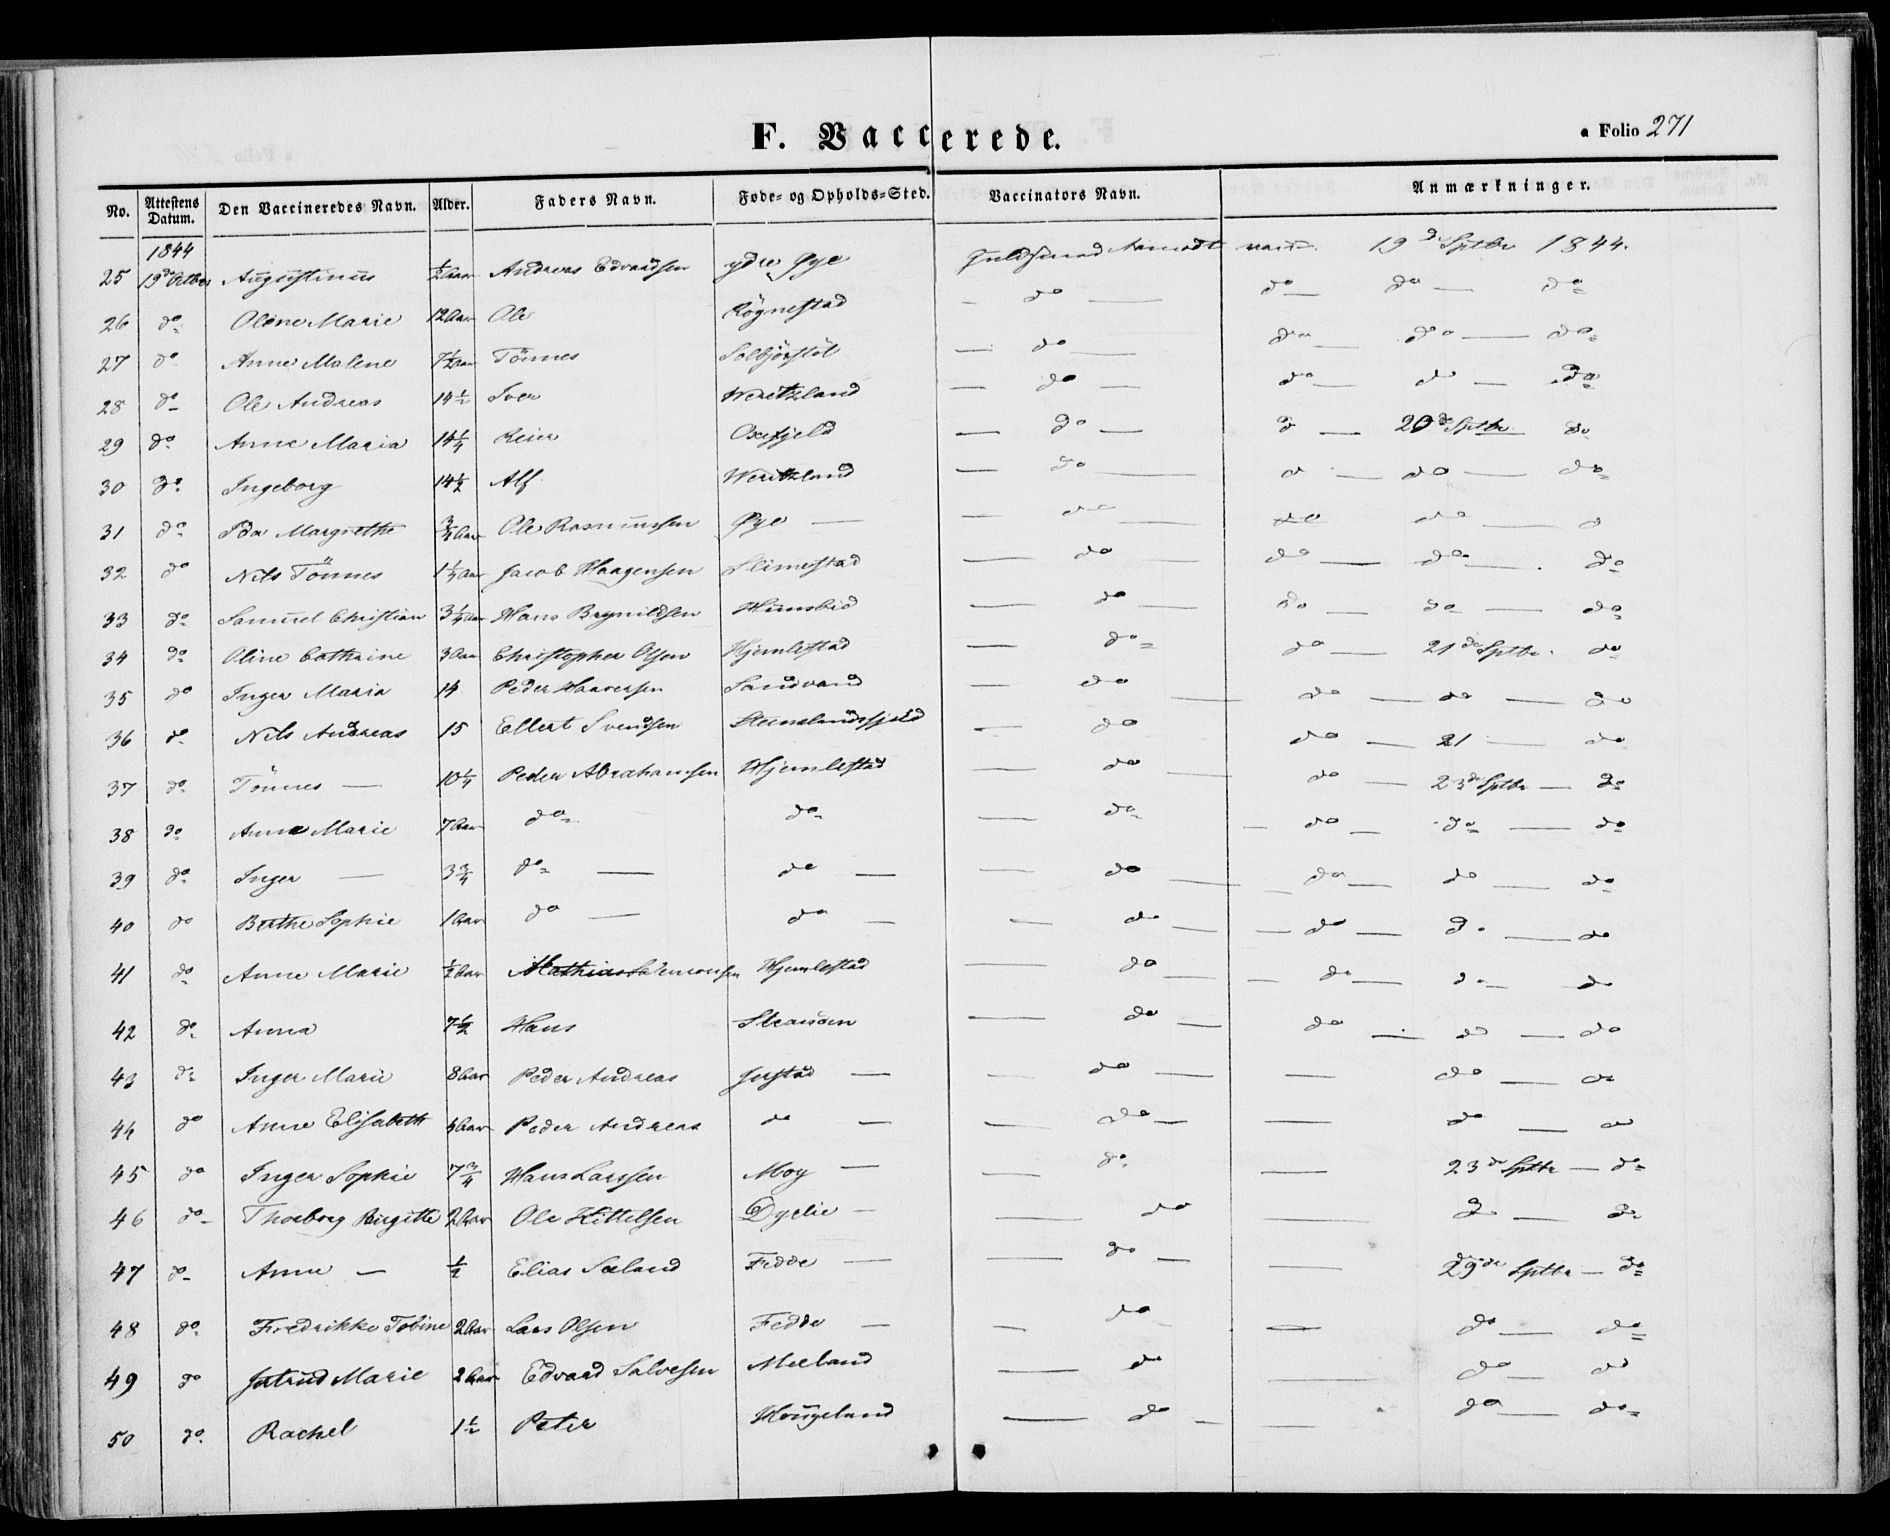 F. Vaccerede.
a Folio 271
No. | Attestens Datum. | Den Vaccineredes Navn. | Alder. | Faders Navn. | Føde- og Opholds-Sted. | Vaccinators Navn. | Anmærkninger.
1844
25 19de Octbr Augustinus ½ Aar Andreas Edvardsen ydre Øye 19de Sptbr 1844.
26 do Oline Marie 12 Aar Ole Rögnestad — do — do — do — do
27 do Anne Malene 7½ Aar Tönnes Solbjörstöl — do — do — do — do
28 do Ole Andreas 14½ Iver Weritzland — do — do — do — do
29 do Anne Maria 14¼ Reier Oxefjeld — do — d — 20de Sptbr do
30 do Ingeborg 14½ Alf Weritzland — do — d — do — do
31 do Ida Margrethe ¾ Aar Ole Rasmussen Øye — — do — do do — d
32 do Nils Tönnes 1¼ Aar Jacob Haagensen Slimestad — do — do — do — do
33 do Samuel Christian 3¼ Aar Hans Brynildsen — do — do — do — do
34 do Oline Cathrine 3 Aar Christopher Olsen Hjemlestad — do do — 21de Sptbr. do
35 do Inger Maria 14 Peder Haaversen Sandvand — do — do — do — do
36 do Nils Andreas 15 Ellert Svendsen — do do — 21 — do
37 do Tönnes — 10¼ Peder Abrahamsen Hjemlestad — do do — 23de Sptbr — do
38 do Anne Marie 7 Aar do do — do — do — do — do
39 do Inger — 3¾ do — do — — do — do — do — do
40 do Berthe Sophie 1 Aar do — do — — do — do — do — do
41 do Anne Marie ½ Aar Hjemlestad — do — do — do — do
42 do Anna 7½ Hans — do — do — do — do
43 do Inger Marie 8 Aar Peder Andreas Jerstad — — do — — do — do
44 do Anne Elisabeth 4 Aar Peder Andreas do — — do — — do — do
45 do Inger Sophie 7¾ Hans Larssen Moy — — do — 23de Sptbr — do
46 do Thorborg Birgitte 2 Aar Ole Kittelsen Dyrlie — — do — d — do
47 do Anne — ½ Elias Sæland Fedde — — do — — 29de Sptbr — do
48 do Fredrikke Tobine 2 Aar Lars Olsen Fedde — — do — do — do
49 do Jertrud Marie 2 Aar Edvard Salvesen Meeland — do — do — do
50 do Rachel 1½ Peter Hougeland — do — — do — do